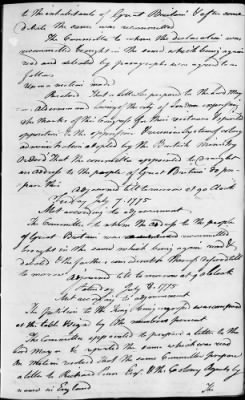 to the inhabitants of Great Britain & after some
debate the same was recommitted
The Committee to whom the declaration was
recommitted brought in the same which being again
read and debated by paragraphs was agreed to as
follows
Upon motion made
Resolved That a letter be prepared to the Lord May
Aldermen and Livery of the city of London expressing
the thanks of this Congress for their virtuous & spirited
opposition to the oppressive & ruinous system of colony
administration adopted by the British Ministry
Ordered That the committee appointed to draught
an address to the people of Great Britain do pre
pare this
Adjourned till tomorrow at 9 o Clock
Friday July 7. 1775
Met according to adjournment
The Committee to whom the address to the people
of Great Britain was recommitted
brought in the same which being again read &
debated the farther consideration thereof referred till
to morrow
Adjourned till to morrow at 9 o Clock
Saturday July 8. 1775
Met according to adjournment
The Petition to the King being engrossed was compared
at the table & signed by the members present
The Committee appointed to prepare a letter to the
Lord Mayor &c reported the same which was read
On motion resolved That the same Committee prepare
a letter to Richard Penn Esq. & the Colony Agents by
name in England
The